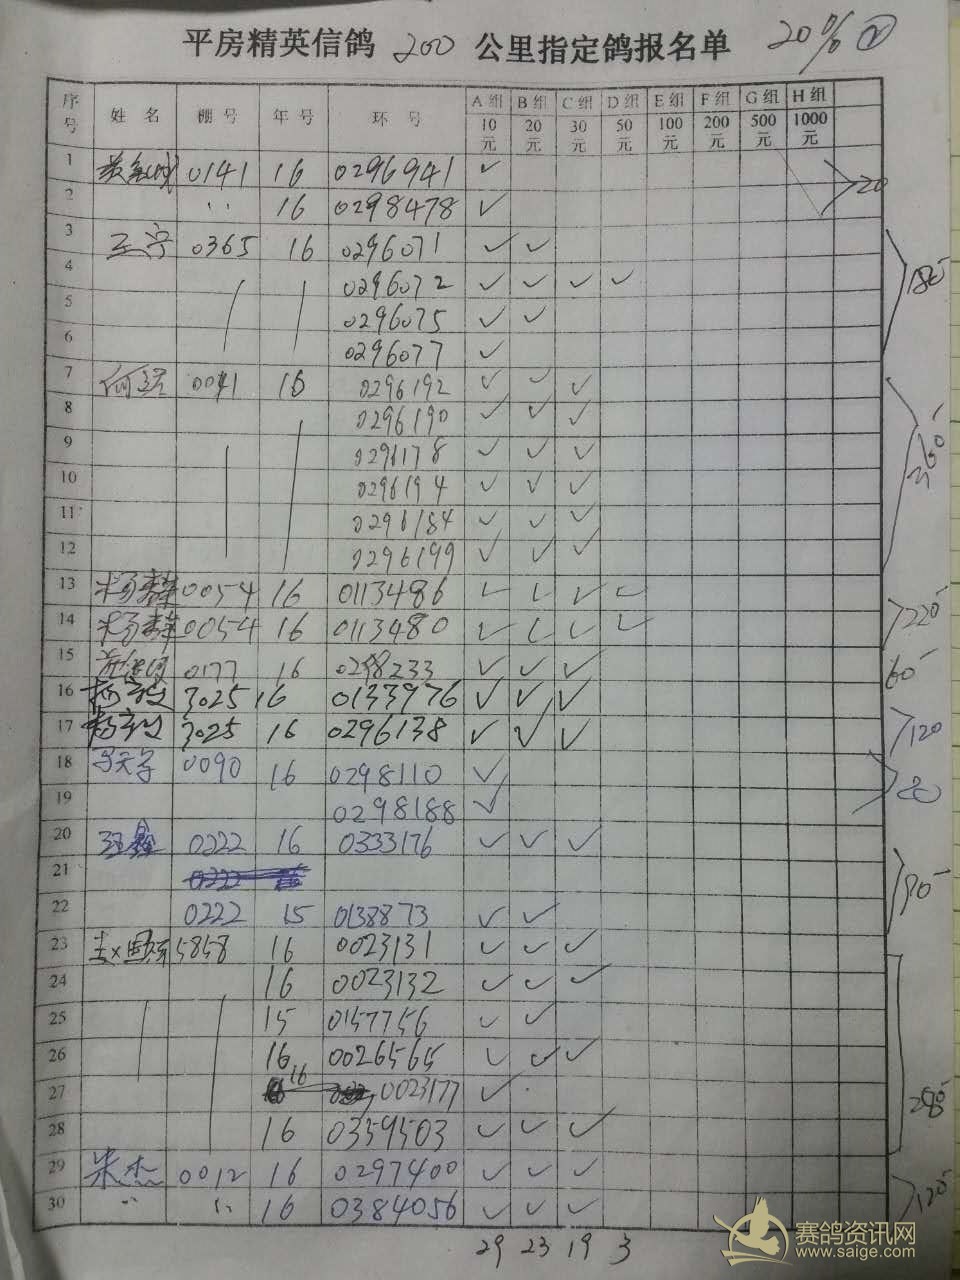 平房精英信鸽 200 公里指定鸽报名单 20% ②
序号 姓名 棚号 年号 环号 A组 10元 B组 20元 C组 30元 D组 50元 E组 100元 F组 200元 G组 500元 H组 1000元
1 0141 16 0296941 ✓
2 〃 16 0298478 ✓ 20
3 王宁 0365 16 0296071 ✓ ✓
4 0296072 ✓ ✓ ✓ ✓ 180
5 0296075 ✓ ✓
6 0296077 ✓
7 0041 16 0296192 ✓ ✓ ✓
8 0296190 ✓ ✓ ✓
9 0296178 ✓ ✓ ✓ 360
10 0296194 ✓ ✓ ✓
11 0296184 ✓ ✓ ✓
12 0296199 ✓ ✓ ✓
13 0054 16 0113486 ✓ ✓ ✓ ✓
14 0054 16 0113480 ✓ ✓ ✓ ✓ 220
15 0177 16 0298233 ✓ ✓ ✓ 60
16 3025 16 0133976 ✓ ✓ ✓
17 3025 16 0296138 ✓ ✓ ✓ 120
18 0090 16 0298110 ✓
19 0298188 ✓ 20
20 0222 16 0333176 ✓ ✓ ✓
21 0222
22 0222 15 0138873 ✓ ✓ 90
23 5858 16 0023131 ✓ ✓ ✓
24 16 0023132 ✓ ✓ ✓
25 15 0157756 ✓ ✓
26 16 0026565 ✓ ✓ ✓
27 16 0023177 ✓ 280
28 16 0359503 ✓ ✓ ✓
29 朱杰 0012 16 0297400 ✓ ✓ ✓
30 〃 〃 16 0384056 ✓ ✓ ✓ 120
29 23 19 3
赛鸽资讯网
www.saige.com